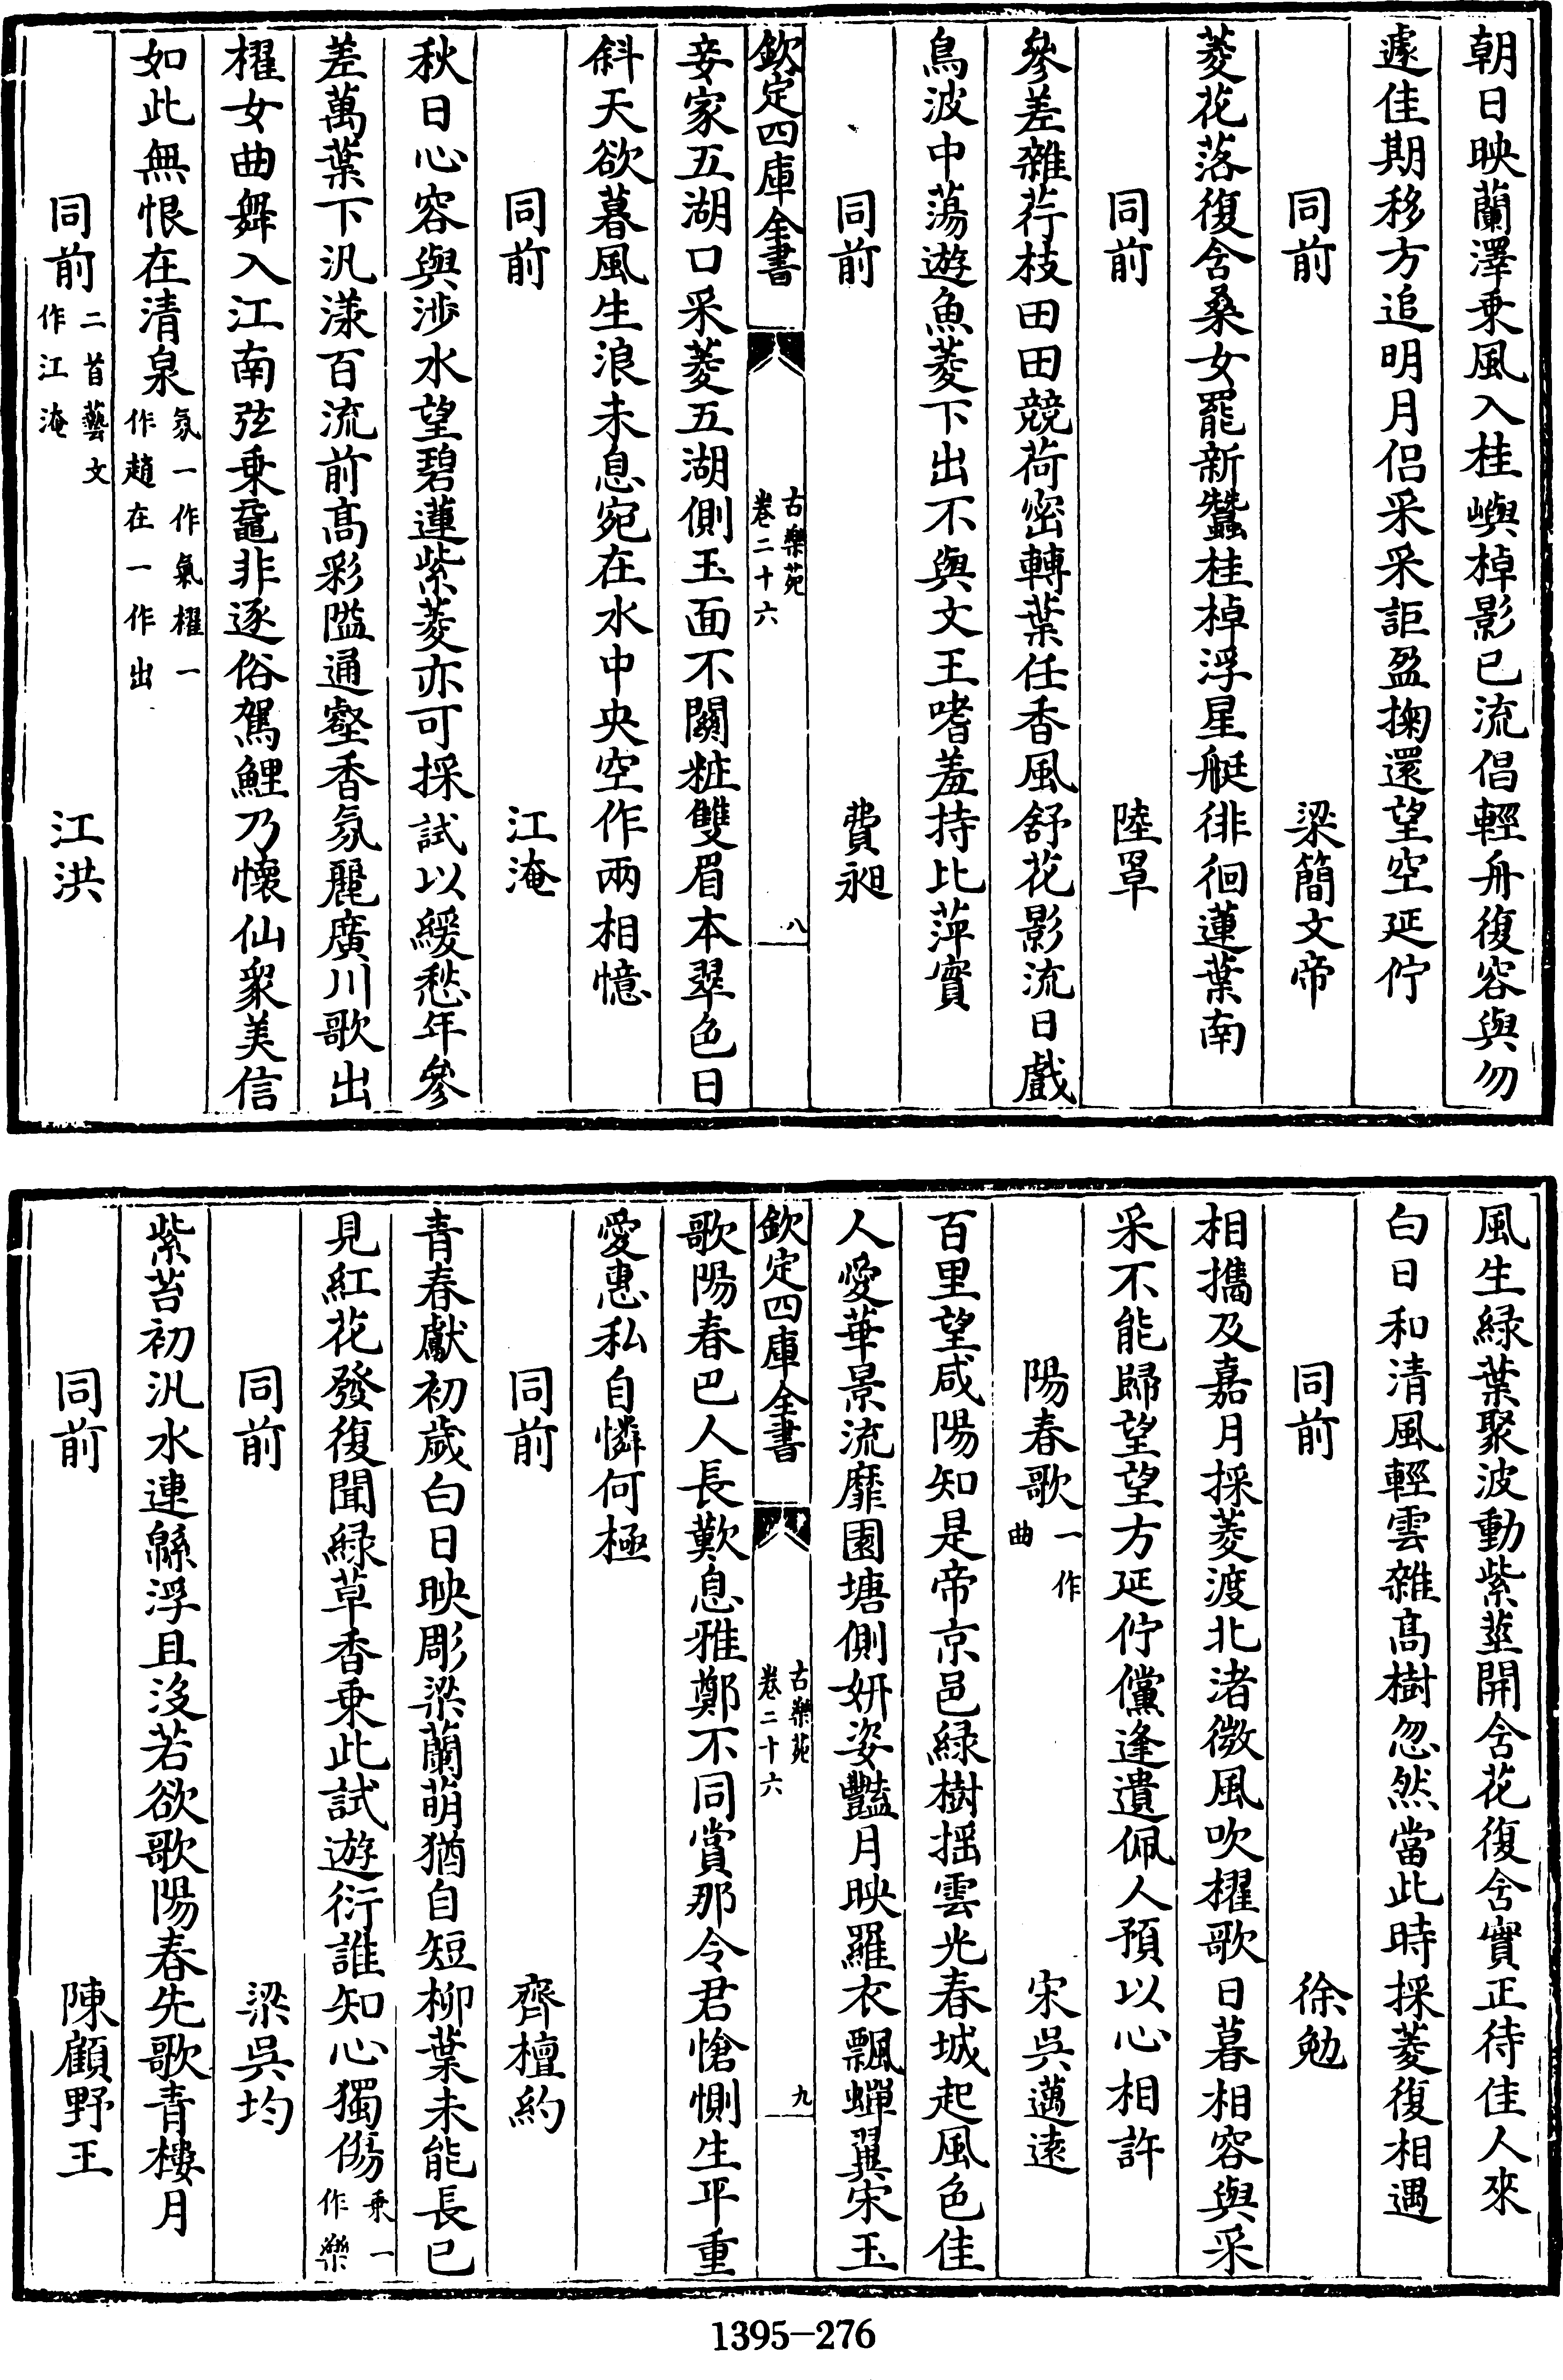 朝日映蘭澤乗風入桂嶼棹影已流倡輕舟復容與勿
遽佳期移方追明月侣采采詎盈掬還望空延佇
同前　梁簡文帝
菱花落復含桑女罷新蠶桂棹浮星艇徘徊蓮葉南
同前　陸罩
參差雜荇枝田田競荷密轉葉任香風舒花影流日戲
鳥波中蕩遊魚菱下出不與文王嗜羞持比萍實
同前　費昶
欽定四庫全書　古樂苑　卷二十六　八
妾家五湖口采菱五湖側玉面不關粧雙眉本翠色日
斜天欲暮風生浪未息宛在水中央空作兩相憶
同前　江淹
秋日心容與涉水望碧蓮紫菱亦可採試以緩愁年參
差萬葉下汎漾百流前髙彩隘通壑香氛麗廣川歌出
櫂女曲舞入江南弦乗黿非逐俗駕鯉乃懷仙衆美信
如此無恨在清泉氛一作氣櫂一作趙在一作出
同前二首藝文作江淹　江洪
風生緑葉聚波動紫莖開含花復含實正待佳人來
白日和清風輕雲雜髙樹忽然當此時採菱復相遇
同前　徐勉
相攜及嘉月採菱渡北渚微風吹櫂歌日暮相容與采
采不能歸望望方延佇儻逢遺佩人預以心相許
陽春歌一作曲　宋吳邁逺
百里望咸陽知是帝京邑緑樹揺雲光春城起風色佳
人愛華景流靡園塘側妍姿豔月映羅衣飄蟬翼宋玉
欽定四庫全書　古樂苑　卷二十六　九
歌陽春巴人長歎息雅鄭不同賞那令君愴惻生平重
愛惠私自憐何極
同前　齊檀約
青春獻初嵗白日映彫梁蘭萌猶自短柳葉未能長已
見紅花發復聞緑草香乗此試遊衍誰知心獨傷乗一作樂
同前　梁吳均
紫苔初汎水連緜浮且沒若欲歌陽春先歌青樓月
同前　陳顧野王
1395-276